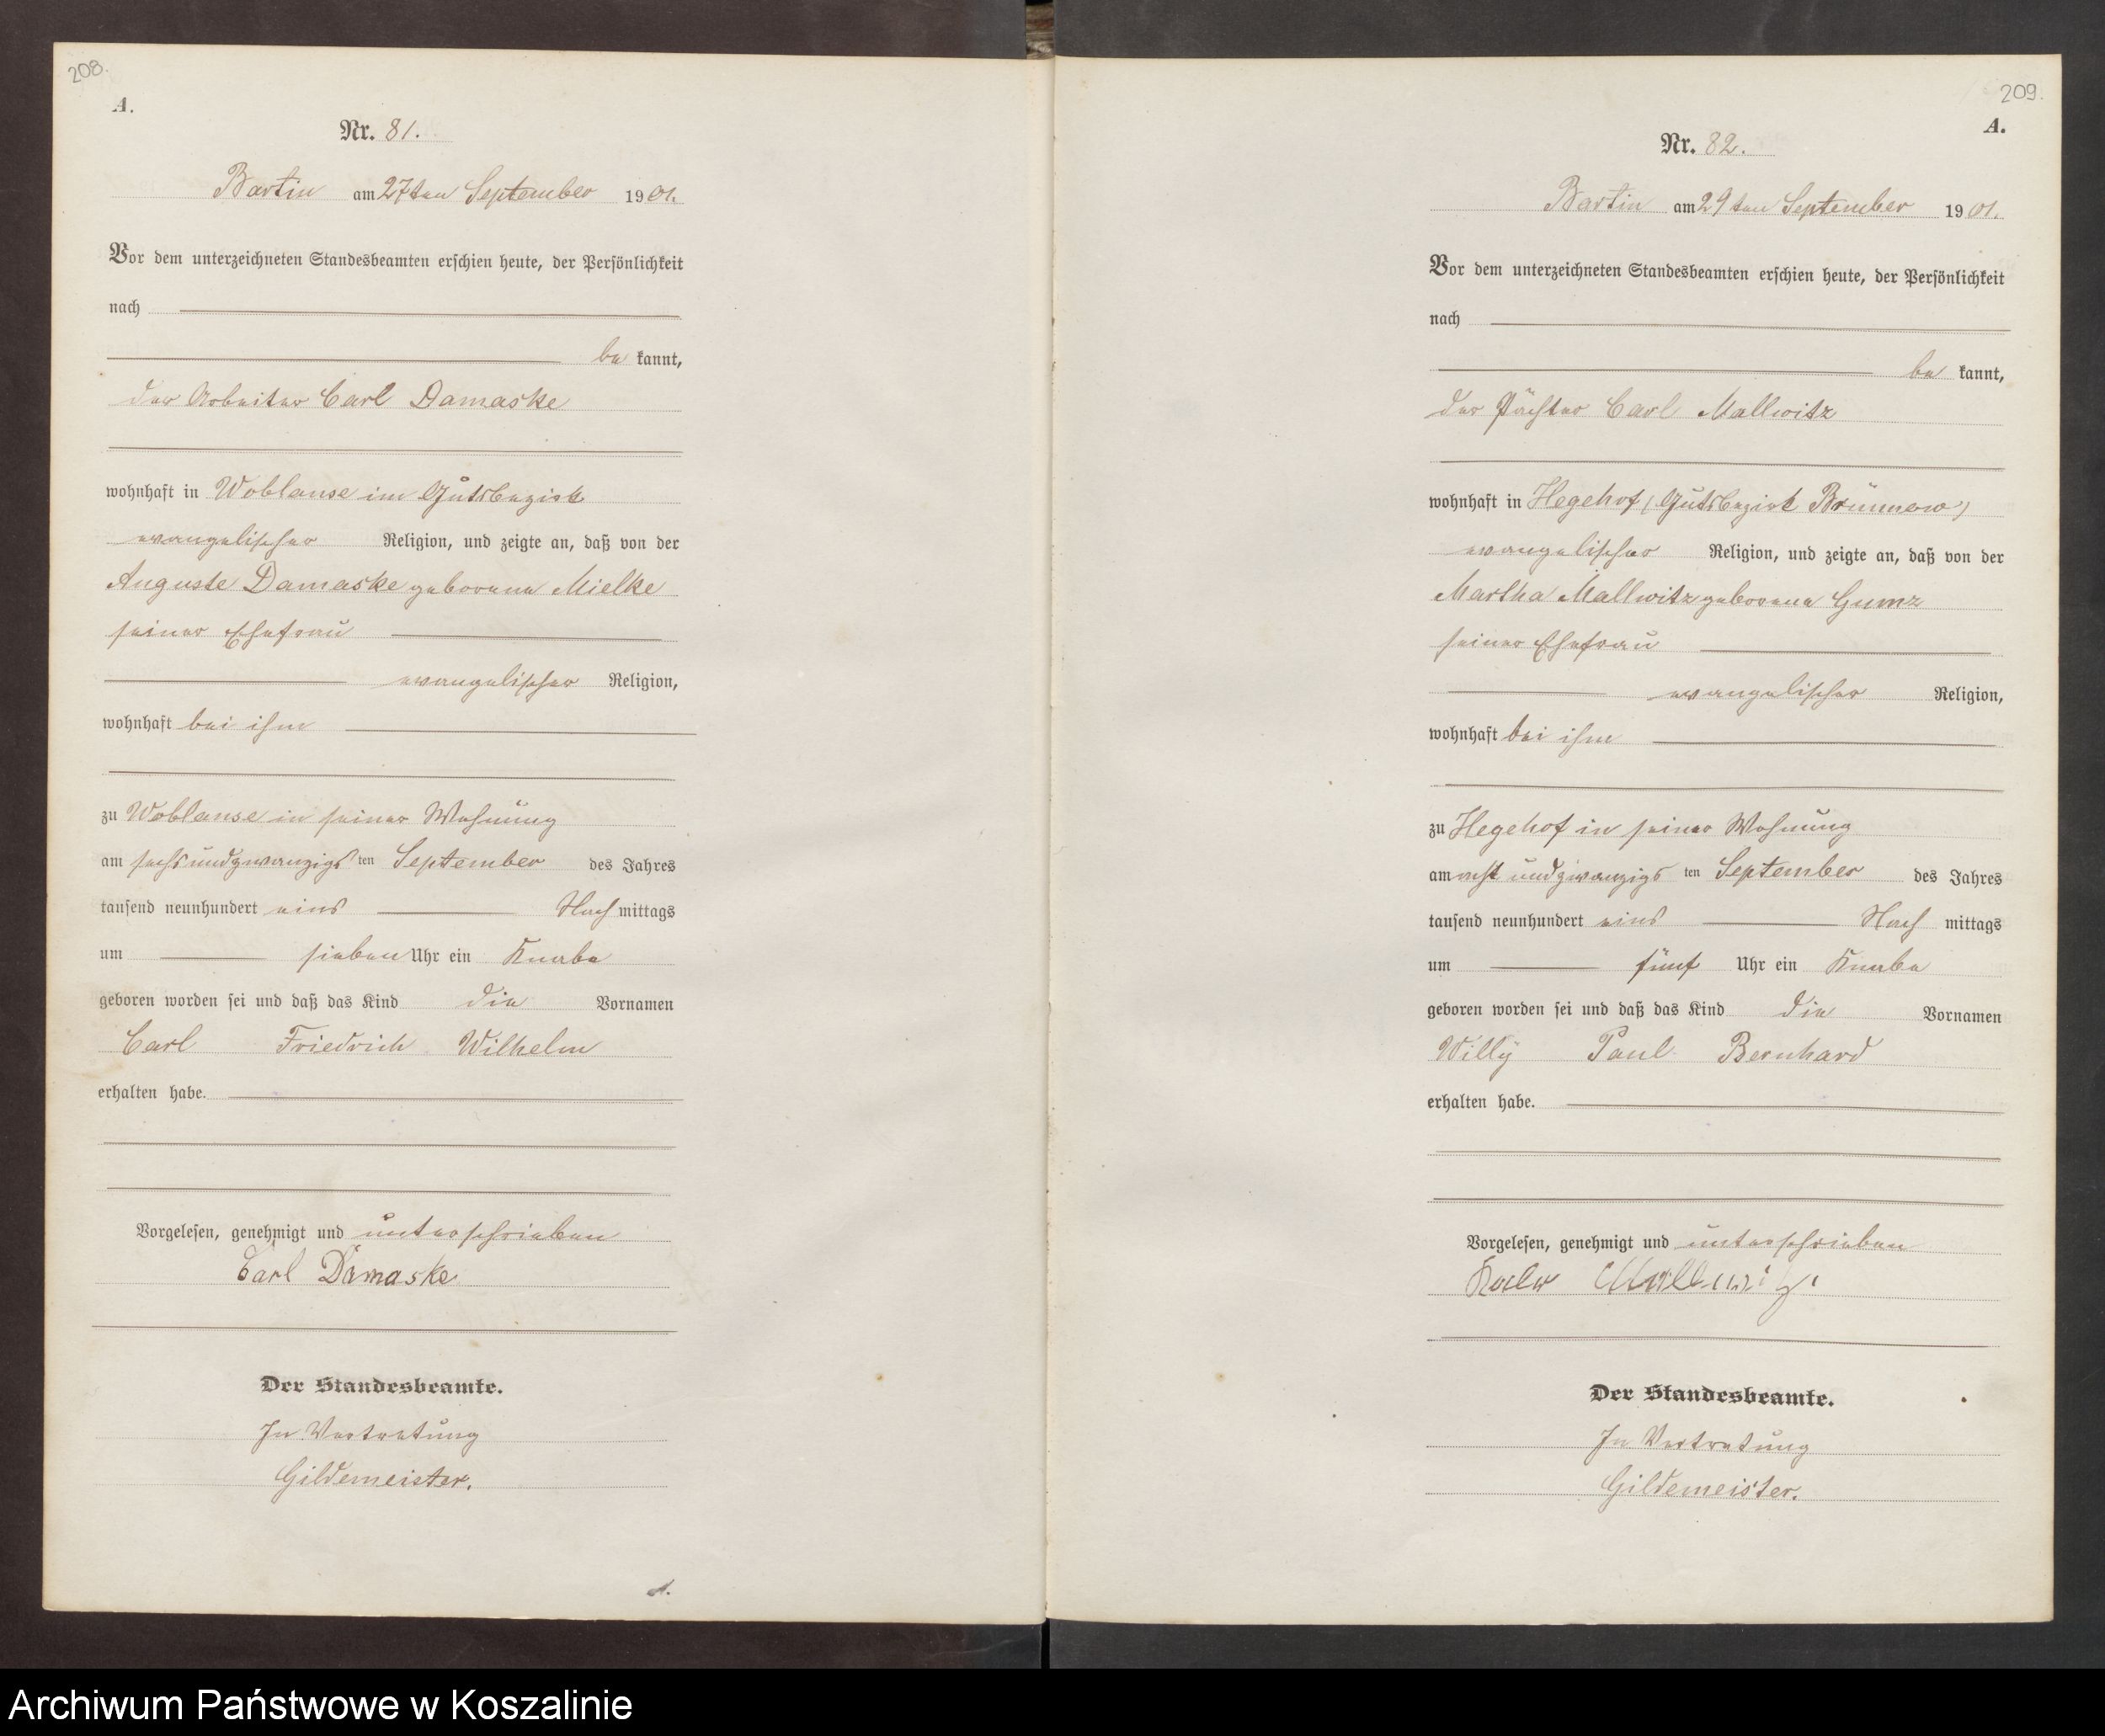 208.
A.
Nr. 81.
Bartin am 27ten September 1901.
Vor dem unterzeichneten Standesbeamten erschien heute, der Persönlichkeit
nach
be kannt,
der Arbeiter Carl Damaske
wohnhaft in Woblanse im Gutsbezirk
evangelischer Religion, und zeigte an, daß von der
Auguste Damaske geborene Mielke
seiner Ehefrau
evangelischer Religion,
wohnhaft bei ihm
zu Woblanse in seiner Wohnung
am sechsundzwanzigs ten September des Jahres
tausend neunhundert eins Nach mittags
um sieben Uhr ein Knabe
geboren worden sei und daß das Kind die Vornamen
Carl Friedrich Wilhelm
erhalten habe.
Vorgelesen, genehmigt und unterschrieben
Carl Damaske
Der Standesbeamte.
In Vertretung
Gildemeister.
209.
A.
Nr. 82.
Bartin am 29ten September 1901.
Vor dem unterzeichneten Standesbeamten erschien heute, der Persönlichkeit
nach
be kannt,
der Pächter Carl Mallwitz
wohnhaft in Hegehof (Gutsbezirk Brünnow)
evangelischer Religion, und zeigte an, daß von der
Martha Mallwitz geborene Gumz
seiner Ehefrau
evangelischer Religion,
wohnhaft bei ihm
zu Hegehof in seiner Wohnung
am acht undzwanzigs ten September des Jahres
tausend neunhundert eins Nach mittags
um fünf Uhr ein Knabe
geboren worden sei und daß das Kind die Vornamen
Willy Paul Bernhard
erhalten habe.
Vorgelesen, genehmigt und unterschrieben
Der Standesbeamte.
In Vertretung
Gildemeister.
Archiwum Państwowe w Koszalinie